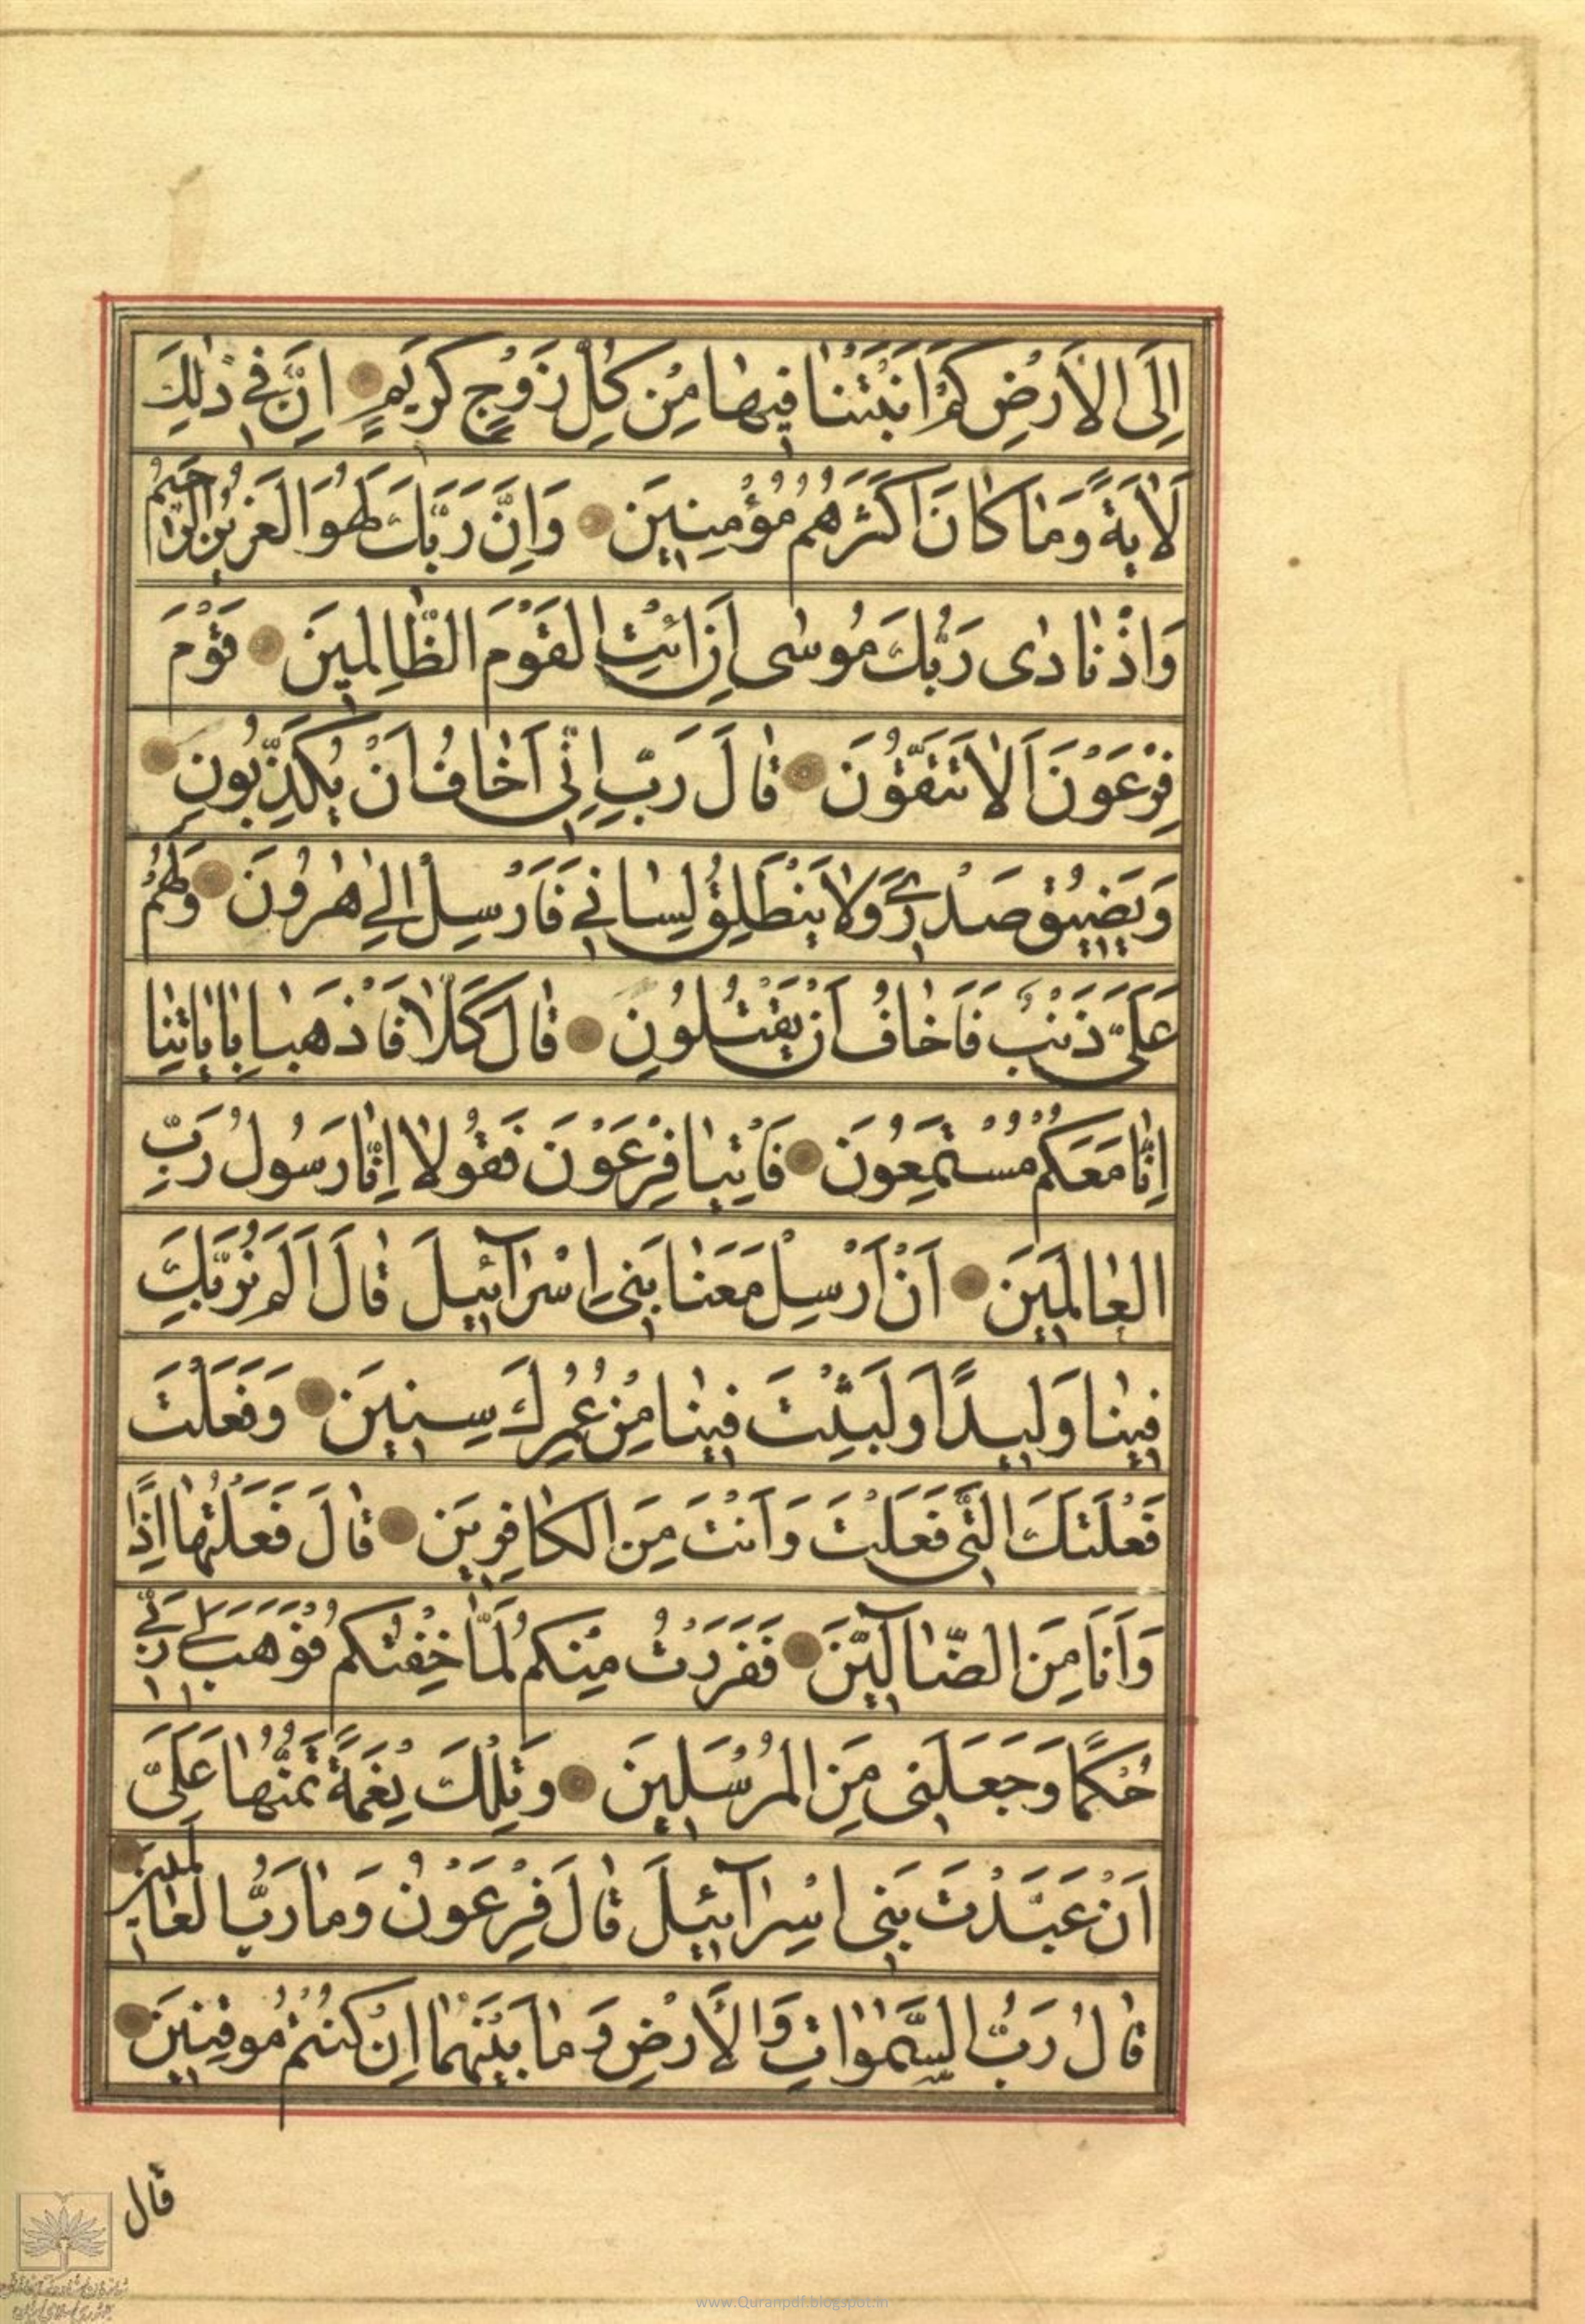 اِلَى الْاَرْضِ كَمْ اَنْبَتْنٰا فيهٰا مِنْ كُلِّ زَوْجٍ كَريَمٍ اِنَّ في ذٰلِكَ
لَاٰيَةً وَمٰا كٰانَ اَكْثَرُهُمْ مُؤْمِنِينَ وَاِنَّ رَبَّكَ لَهُوَ الْعَزيزُ الرَّحيمُ
وَاِذْ نٰادٰى رَبُّكَ مُوسٰى اَنِ ائْتِ الْقَوْمَ الظّٰالِمينَ قَوْمَ
فِرْعَوْنَ اَلٰا تَتَّقُونَ قٰالَ رَبِّ اِنّى اَخٰافُ اَنْ يُكَذِّبُونِ
وَيَضيقُ صَدْرى وَلٰا يَنْطَلِقُ لِسٰاني فَاَرْسِلْ اِلىٰ هٰرُونَ وَلَهُمْ
عَلَىَّ ذَنْبٌ فَاَخٰافُ اَنْ يَقْتُلُونِ قٰالَ كَلّٰا فَاذْهَبٰا بِاٰيٰاتِنٰا
اِنّٰا مَعَكُمْ مُسْتَمِعُونَ فَاْتِيٰا فِرْعَوْنَ فَقُولٰا اِنّٰا رَسُولُ رَبِّ
الْعٰالَمينَ اَنْ اَرْسِلْ مَعَنٰا بَنى اِسْرٰآئيلَ قٰالَ اَلَمْ نُرَبِّكَ
فينٰا وَليدًا وَلَبِثْتَ فينٰا مِنْ عُمُرِكَ سِنينَ وَفَعَلْتَ
فَعْلَتَكَ الَّتى فَعَلْتَ وَاَنْتَ مِنَ الْكٰافِرينَ قٰالَ فَعَلْتُهٰا اِذًا
وَاَنَا مِنَ الضّٰآلّينَ فَفَرَرْتُ مِنْكُمْ لَمّٰا خِفْتُكُمْ فَوَهَبَ لى رَبّى
حُكْمًا وَجَعَلَنى مِنَ الْمُرْسَلينَ وَتِلْكَ نِعْمَةٌ تَمُنُّهٰا عَلَىَّ
اَنْ عَبَّدْتَ بَنى اِسْرٰآئيلَ قٰالَ فِرْعَوْنُ وَمٰا رَبُّ الْعٰالَمينَ
قٰالَ رَبُّ السَّمٰوٰاتِ وَالْاَرْضِ وَمٰا بَيْنَهُمٰا اِنْ كُنْتُمْ مُوقِنينَ
قال
www.Quranpdf.blogspot.in